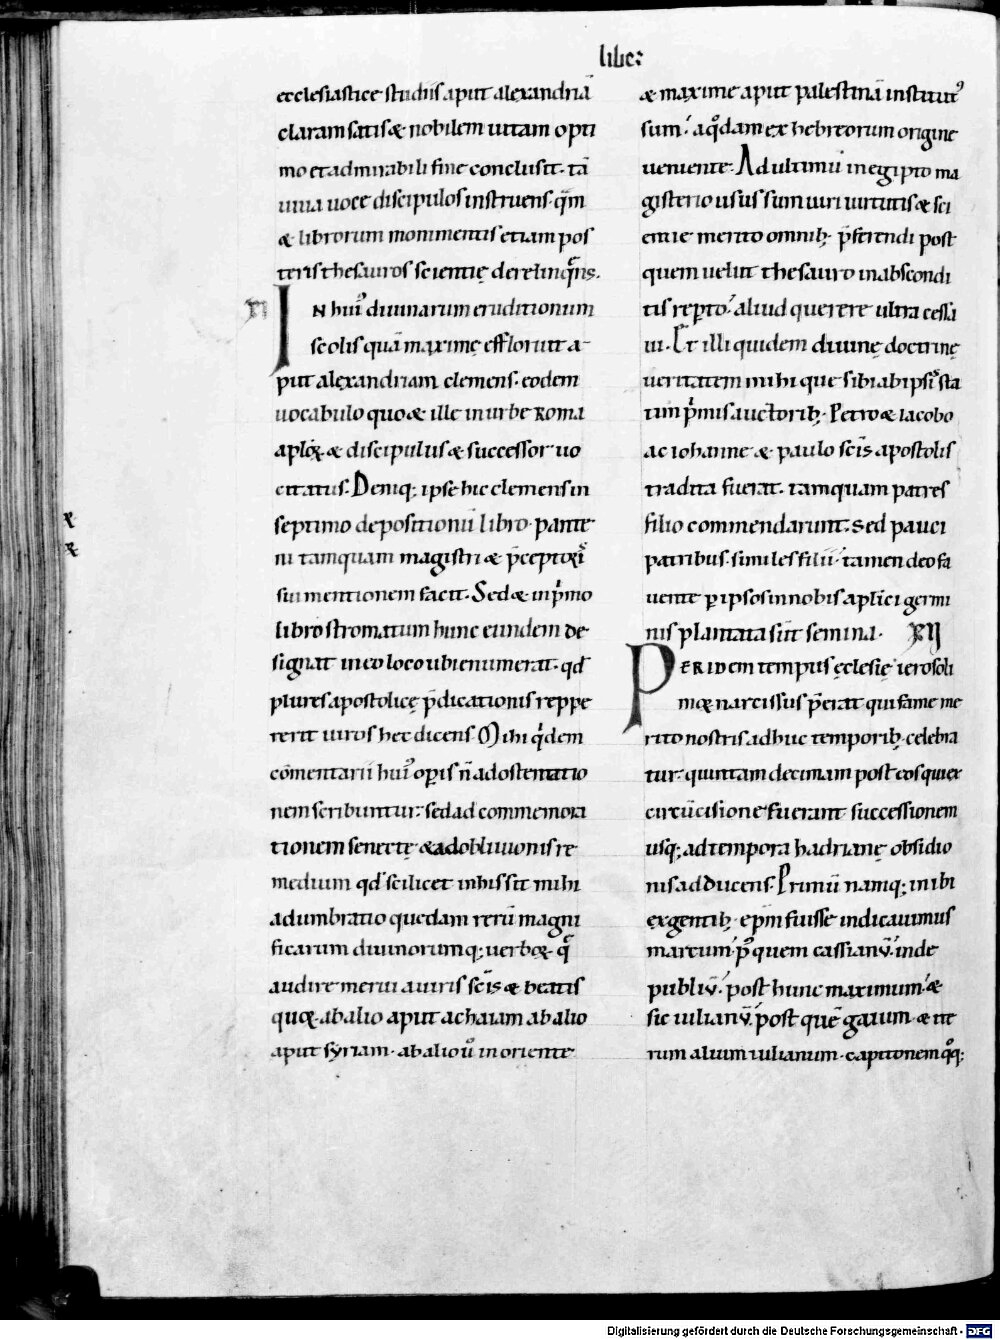 liber
ecclesiastice studiis aput alexandriā
claram satis & nobilem uitam opti
mo et admirabili fine conclusit. tā
uiua uoce discipulos instruens. q̄m
& librorum monimentis etiam pos
teris thesauros scientię derelinquēs.
XI
IN hui' diuinarum eruditionum
scolis quā maxime effloruit a-
put alexandriam clemens. eodem
uocabulo quo & ille in urbe Roma
aplōꝝ & discipulus & successor uo
citatus. Deniq; ipse hic clemens in
septimo depositionū libro. pante
ni tamquam magistri & p̄ceptoris
sui mentionem facit. Sed & in p'mo
libro stromatum hunc eundem de
signat in eo loco ubi enumerat. qd̄
plures apostolicę p̄dicationis reppe
rerit uiros hec dicens. Mihi q'dem
cōmentarii hui' opis n̄ ad ostentatio
nem scribuntur. sed ad commemora
tionem senectę & ad obliuionis re
medium qd̄ scilicet in his sit mihi
adumbratio quedam rerū magni
ficarum diuinorumq; uerboꝝ. q̄
audire merui a uiris sc̄is & beatis
quoꝝ. ab alio aput achaiam ab alio
aput syriam. ab alio ū in oriente
& maxime aput palestinā institut'
sum. a qodam ex hebreorum origine
ueniente. Ad ultimū in egipto ma
gisterio usus sum uiri uirtutis & sci
entie merito omnib; p̄ferendi post
quem uelut thesauro in abscondi
tis reperto. aliud querere ultra cessa
ui. Et illi quidem diuinę doctrinę
ueritatem mihi que sibi ab ipsis sta
tim p'mis auctorib; Petro & iacobo
ac iohanne & paulo sc̄is apostolis
tradita fuerat. tamquam patres
filio commendarunt. Sed pauci
patribus. similes filii. tamen deo fa
uente p ipsos in nobis aplīci germi
nis plantata sūt semina. XII
PER IDem tempus ęclesię ierosoli
mę narcissus p̄erat qui fame me
rito nostris adhuc temporib; celebra
tur. quintam decimam post eos qui ex
circūcisione fuerant successionem
usq; ad tempora hadrianę obsidio
nis adducens. Primū namq; inibi
ex gentib; ep̄m fuisse indicauimus
marcum. p' quem cassianū. inde
publiū. post hunc maximum. &
sic iulianū. post quē gaium. & ite
rum alium iulianum. capitonem qoq;
Digitalisierung gefördert durch die Deutsche Forschungsgemeinschaft - DFG